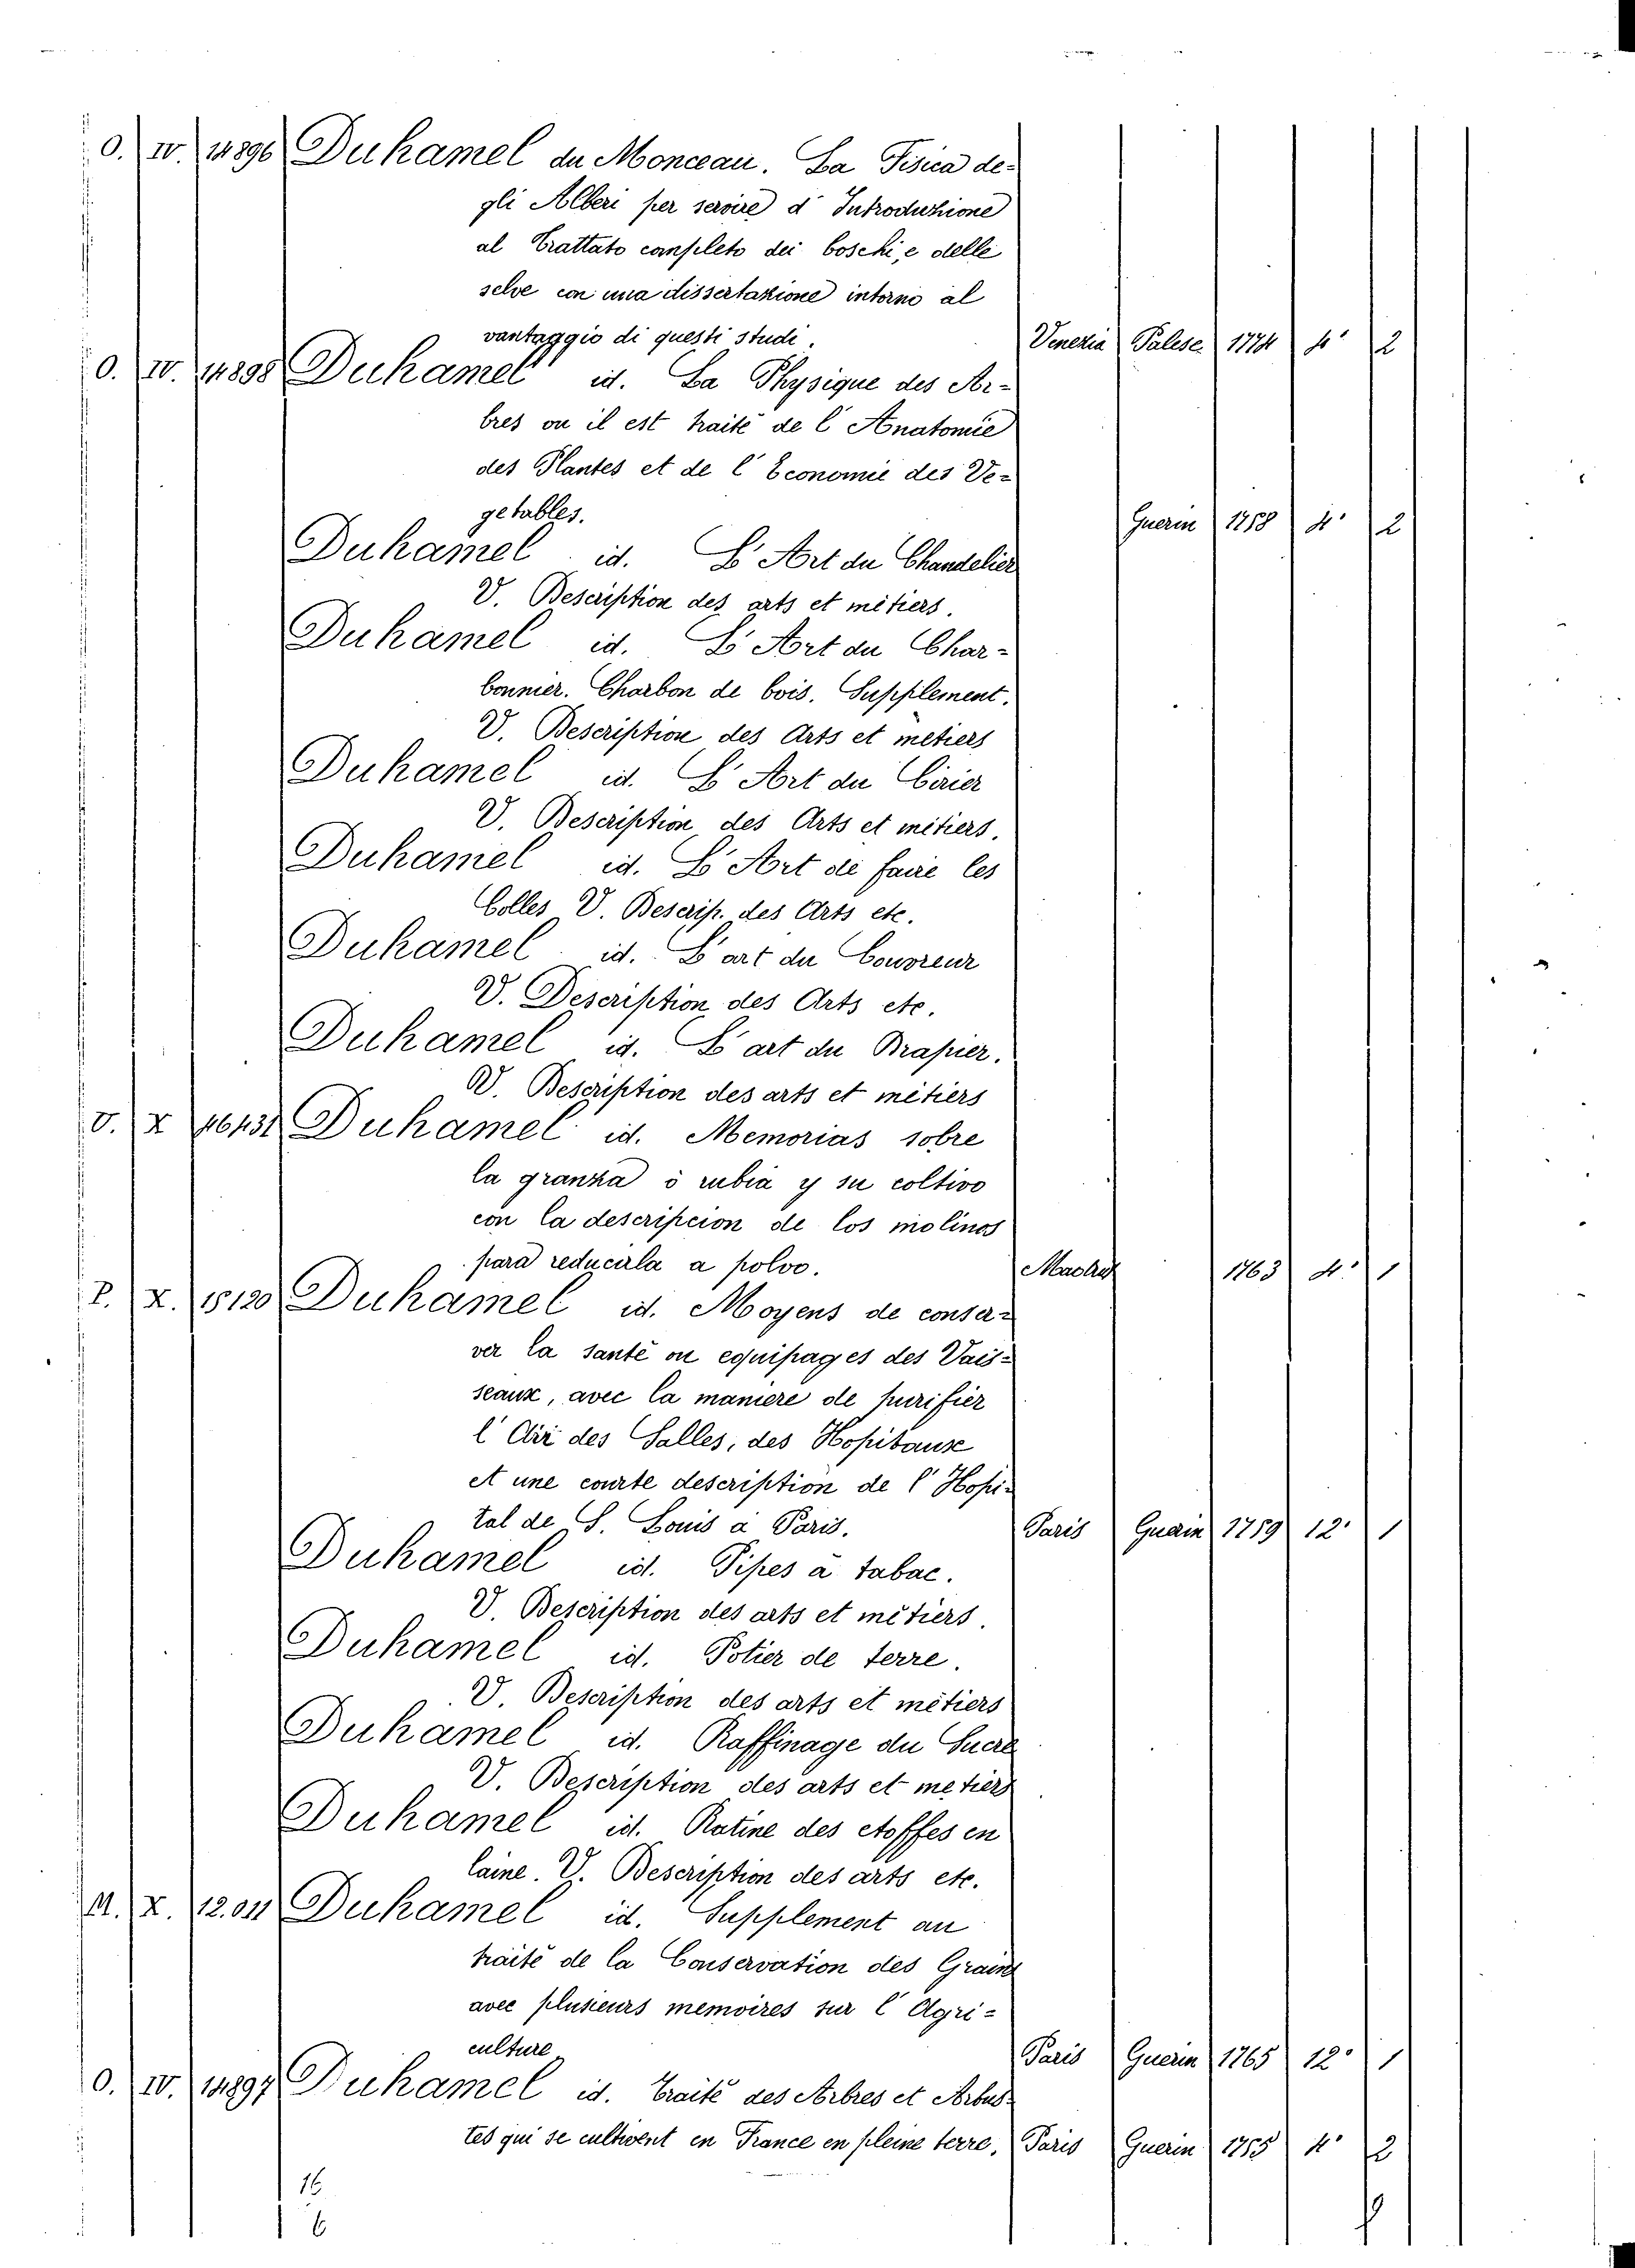 O. IV. 14896 Duhamel du Monceau. La Fisica de-
gli Alberi per servire d' Introduzione
al Trattato completo dei boschi, e delle
selve con una dissertazione intorno al
vantaggio di questi studi. Venezia Palese 1774 4° 2
O. IV. 14898 Duhamel id. La Physique des Ar-
bres ou il est traité de l' Anatomie
des Plantes et de l' Economie des Ve-
getables. Guerin 1758 4° 2
Duhamel id. L' Art du Chandelier
V. Description des arts et métiers.
Duhamel id. L' Art du Char-
bonnier. Charbon de bois. Supplement.
V. Description des Arts et metiers
Duhamel id. L' Art du Cirier
V. Description des Arts et métiers.
Duhamel id. L' Art de faire les
Colles V. Descrip. des Arts etc.
Duhamel id. L' art du Couvreur
V. Description des Arts etc.
Duhamel id. L' art du Drapier.
V. Description des arts et métiers
V. X 46431 Duhamel id. Memorias sobre
la granza ò rubia y su coltivo
con la descripcion de los molinos
para reducirla a polvo. Madrid 1763 4° 1
P. X. 15120 Duhamel id. Moyens de conser-
ver la santé ou equipages des Vais-
seaux, avec la maniere de purifier
l' Air des Salles, des Hopitaux
et une courte description de l' Hopi-
tal de S. Louis à Paris. Paris Guerin 1759 12° 1
Duhamel id. Pipes à tabac.
V. Description des arts et métiers.
Duhamel id. Potier de terre.
V. Description des arts et métiers
Duhamel id. Raffinage du Sucre
V. Description des arts et metiers
Duhamel id. Ratine des etoffes en
laine. V. Description des arts etc.
M. X. 12.011 Duhamel id. Supplement au
traité de la Conservation des Grains
avec plusieurs memoires sur l' Agri-
culture Paris Guerin 1765 12° 1
O. IV. 14897 Duhamel id. Traité des Arbres et Arbus-
tes qui se cultivent en France en pleine terre. Paris Guerin 1755 4° 2
16
6 9